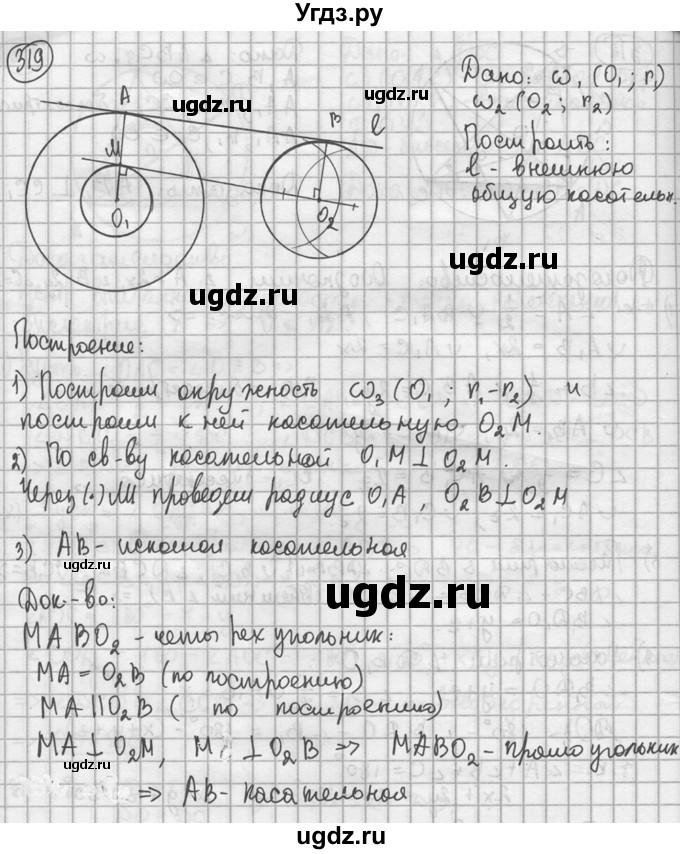 Угдз.ру
319
Дано: ω₁ (O₁; r₁)
ω₂ (O₂; r₂)
Построить:
l - внешнюю
общую касательн.
A
B
l
M
O₁
O₂
ugdz.ru
ugdz.ru
ugdz.ru
Построение:
1) Построим окружность ω₃ (O₁; r₁-r₂) и
построим к ней касательную O₂M.
2) По св-ву касательной O₁M⊥O₂M.
Через (·) M проведем радиус O₁A, O₂B⊥O₂M
3) AB - искомая касательная
ugdz.ru
ugdz.ru
Док-во:
MABO₂ - четырехугольник:
MA = O₂B (по построению)
MA || O₂B (по построению)
MA⊥O₂M, M ⊥O₂B ⇒ MABO₂ - прямоугольник
⇒ AB - касательная
ugdz.ru
ugdz.ru
ugdz.ru